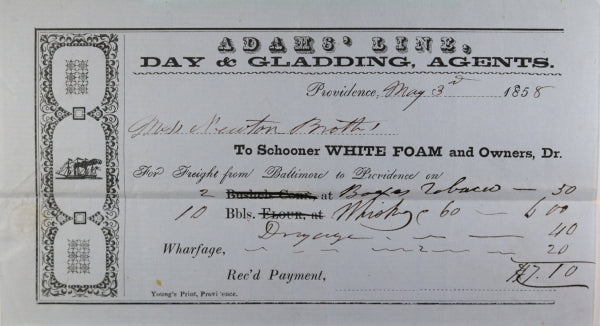 ADAMS' LINE,
DAY & GLADDING, AGENTS.
Providence, May 3rd 1858
Mess Newton Broths
To Schooner WHITE FOAM and Owners, Dr.
For Freight from Baltimore to Providence on
2 Bushels Corn, at Boxes Tobacco — 50
10 Bbls. Flour, at Whisky 60 — 6 00
Drayage — 40
Wharfage, 20
Rec'd Payment, $7.10
Young's Print, Providence.